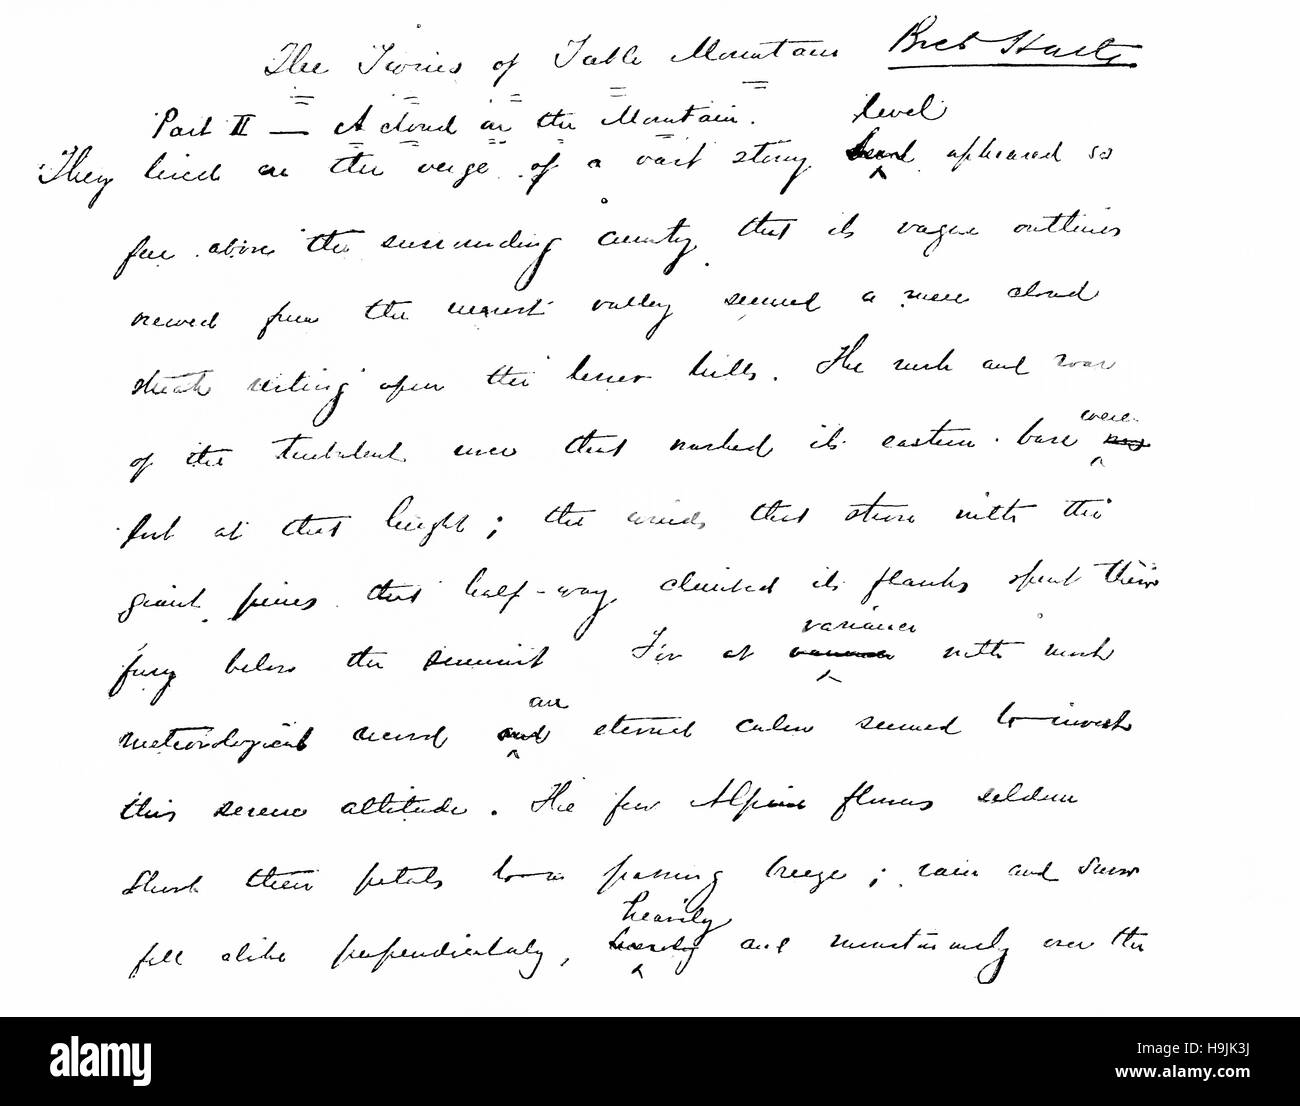 The Twins of Table Mountain Bret Harte
Part II — A cloud on the Mountain.
level
They lived on the verge of a vast stony appeared so
far above the surrounding country that its vague outlines
viewed from the nearest valley seemed a mere cloud
streak resting upon the lesser hills. The rush and roar
were
of the turbulent river that washed its eastern base
lost at that height; the winds that strove with the
giant pines that half-way climbed its flanks spent their
variance
fury below the summit For at with most
an
meteorological record eternal calm seemed to invest
this serene altitude. The few Alpine flowers seldom
shook their petals to a passing breeze; rain and snow
heavily
fell alike perpendicularly, and monotonously over the
alamy
alamy
Image ID: H9JK3J
www.alamy.com